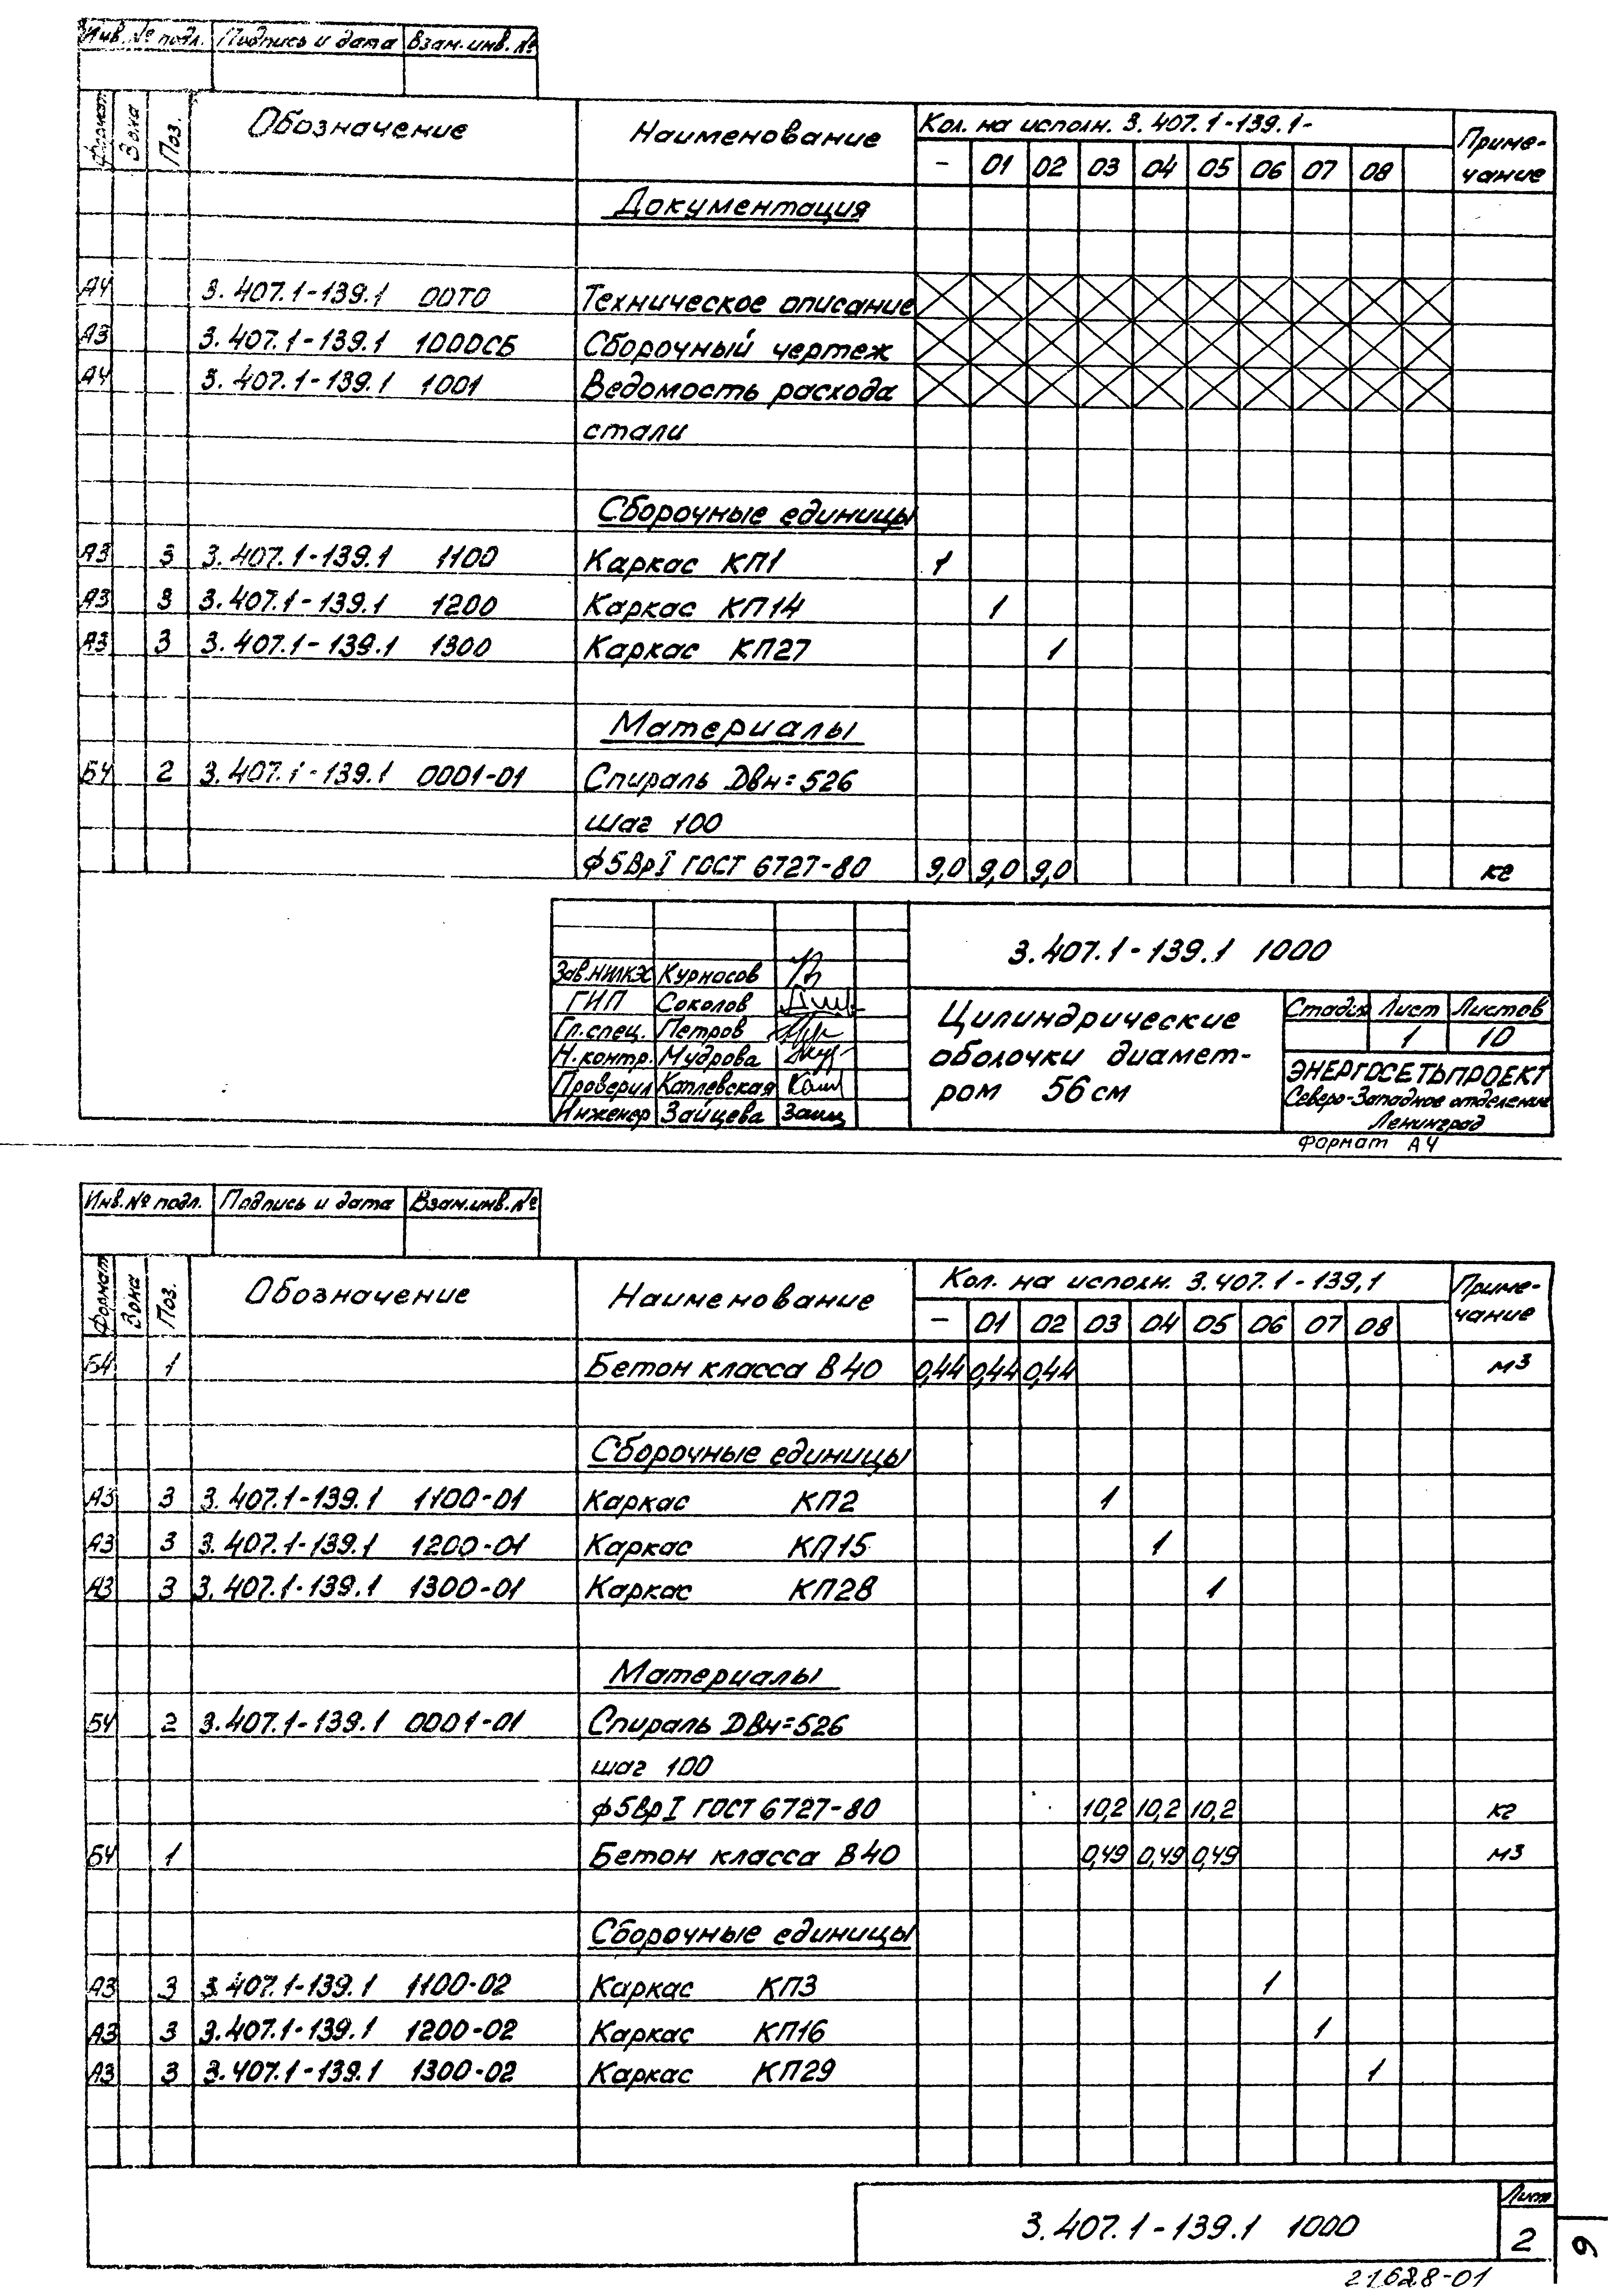 Инв. № подл. Подпись и дата Взам.инв. №
Формат Зона Поз. Обозначение Наименование Кол. на исполн. 3.407.1-139.1- Приме-
- 01 02 03 04 05 06 07 08 чание
Документация
А4 3.407.1-139.1 00ТО Техническое описание
А3 3.407.1-139.1 1000СБ Сборочный чертеж
А4 3.407.1-139.1 1001 Ведомость расхода
стали
Сборочные единицы
А3 3 3.407.1-139.1 1100 Каркас КП1 1
А3 3 3.407.1-139.1 1200 Каркас КП14 1
А3 3 3.407.1-139.1 1300 Каркас КП27 1
Материалы
БЧ 2 3.407.1-139.1 0001-01 Спираль Dвн=526
шаг 100
ф5ВрI ГОСТ 6727-80 9,0 9,0 9,0 кг
3.407.1-139.1 1000
Зав.НИЛКЭС Курносов
ГИП Соколов
Гл.спец. Петров
Н.контр. Мудрова
Проверил Котлевская
Инженер Зайцева
Цилиндрические
оболочки диамет-
ром 56 см
Стадия Лист Листов
1 10
ЭНЕРГОСЕТЬПРОЕКТ
Северо-Западное отделение
Ленинград
Формат А4
Инв. № подл. Подпись и дата Взам.инв. №
Формат Зона Поз. Обозначение Наименование Кол. на исполн. 3.407.1-139,1 Приме-
- 01 02 03 04 05 06 07 08 чание
БЧ 1 Бетон класса В40 0,44 0,44 0,44 м3
Сборочные единицы
А3 3 3.407.1-139.1 1100-01 Каркас КП2 1
А3 3 3.407.1-139.1 1200-01 Каркас КП15 1
А3 3 3.407.1-139.1 1300-01 Каркас КП28 1
Материалы
БЧ 2 3.407.1-139.1 0001-01 Спираль Dвн=526
шаг 100
ф5ВрI ГОСТ 6727-80 10,2 10,2 10,2 кг
БЧ 1 Бетон класса В40 0,49 0,49 0,49 м3
Сборочные единицы
А3 3 3.407.1-139.1 1100-02 Каркас КП3 1
А3 3 3.407.1-139.1 1200-02 Каркас КП16 1
А3 3 3.407.1-139.1 1300-02 Каркас КП29 1
3.407.1-139.1 1000
Лист
2
9
21628-01